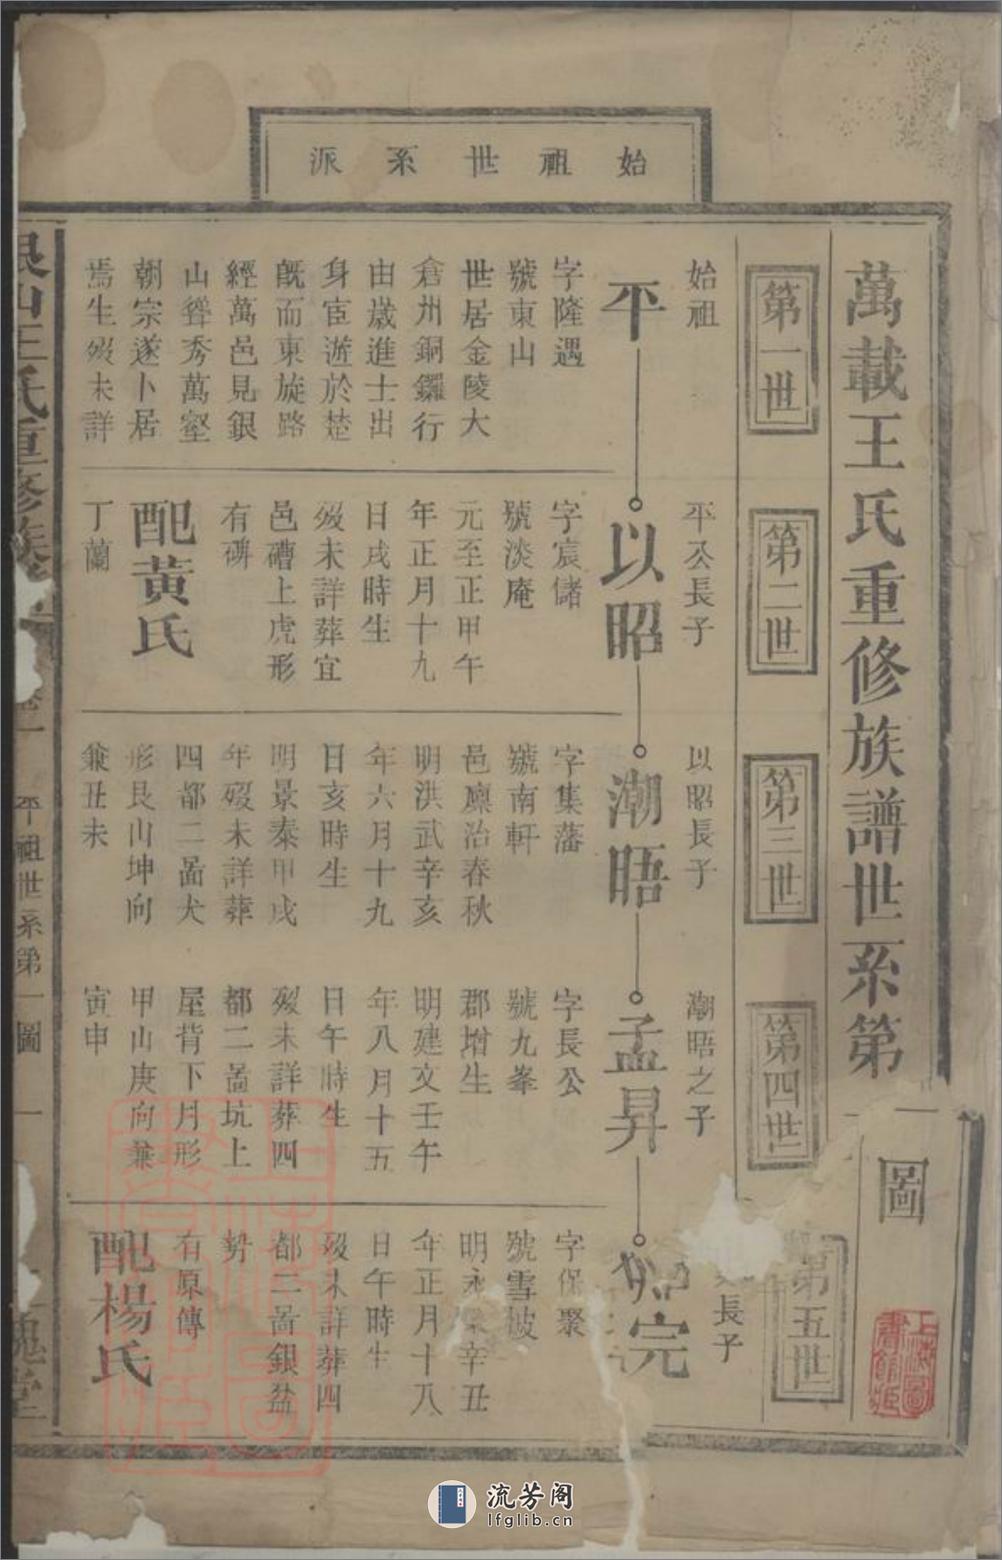 始祖世系派
萬載王氏重修族譜世系第一圖
第一世
第二世
第三世
第四世
第五世
始祖
平
字隆遇
號東山
世居金陵大
倉州銅鑼行
由歲進士出
身宦遊於楚
既而東旋路
經萬邑見銀
山聳秀萬壑
朝宗遂卜居
焉生歿未詳
平公長子
以昭
字宸儲
號淡庵
元至正甲午
年正月十九
日戌時生
歿未詳葬宜
邑礌上虎形
有碑
配黄氏
丁蘭
以昭長子
潮晤
字集藩
號南軒
邑廩治春秋
明洪武辛亥
年六月十九
日亥時生
明景泰甲戌
年歿未詳葬
四都二啚犬
形艮山坤向
兼丑未
潮晤之子
孟昇
字長公
號九峯
郡增生
明建文壬午
年八月十五
日午時生
歿未詳葬四
都二啚坑上
屋背下月形
甲山庚向兼
寅申
長子
完
字保聚
號雪坡
明永辛丑
年正月十八
日午時生
歿未詳葬四
都二啚銀盆
勢
有原傳
配楊氏
山王氏重修族
平祖世系第一圖
一
槐堂
上海圖
書館藏
流芳阁
lfglib.cn